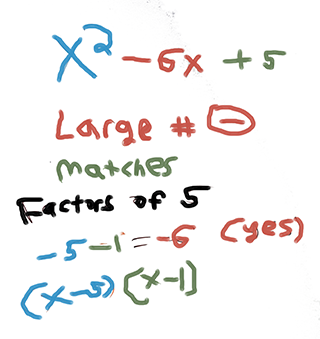 x² - 6x + 5
Large # ⊖
matches
Factors of 5
-5 -1 = -6 (yes)
(x-5) (x-1)